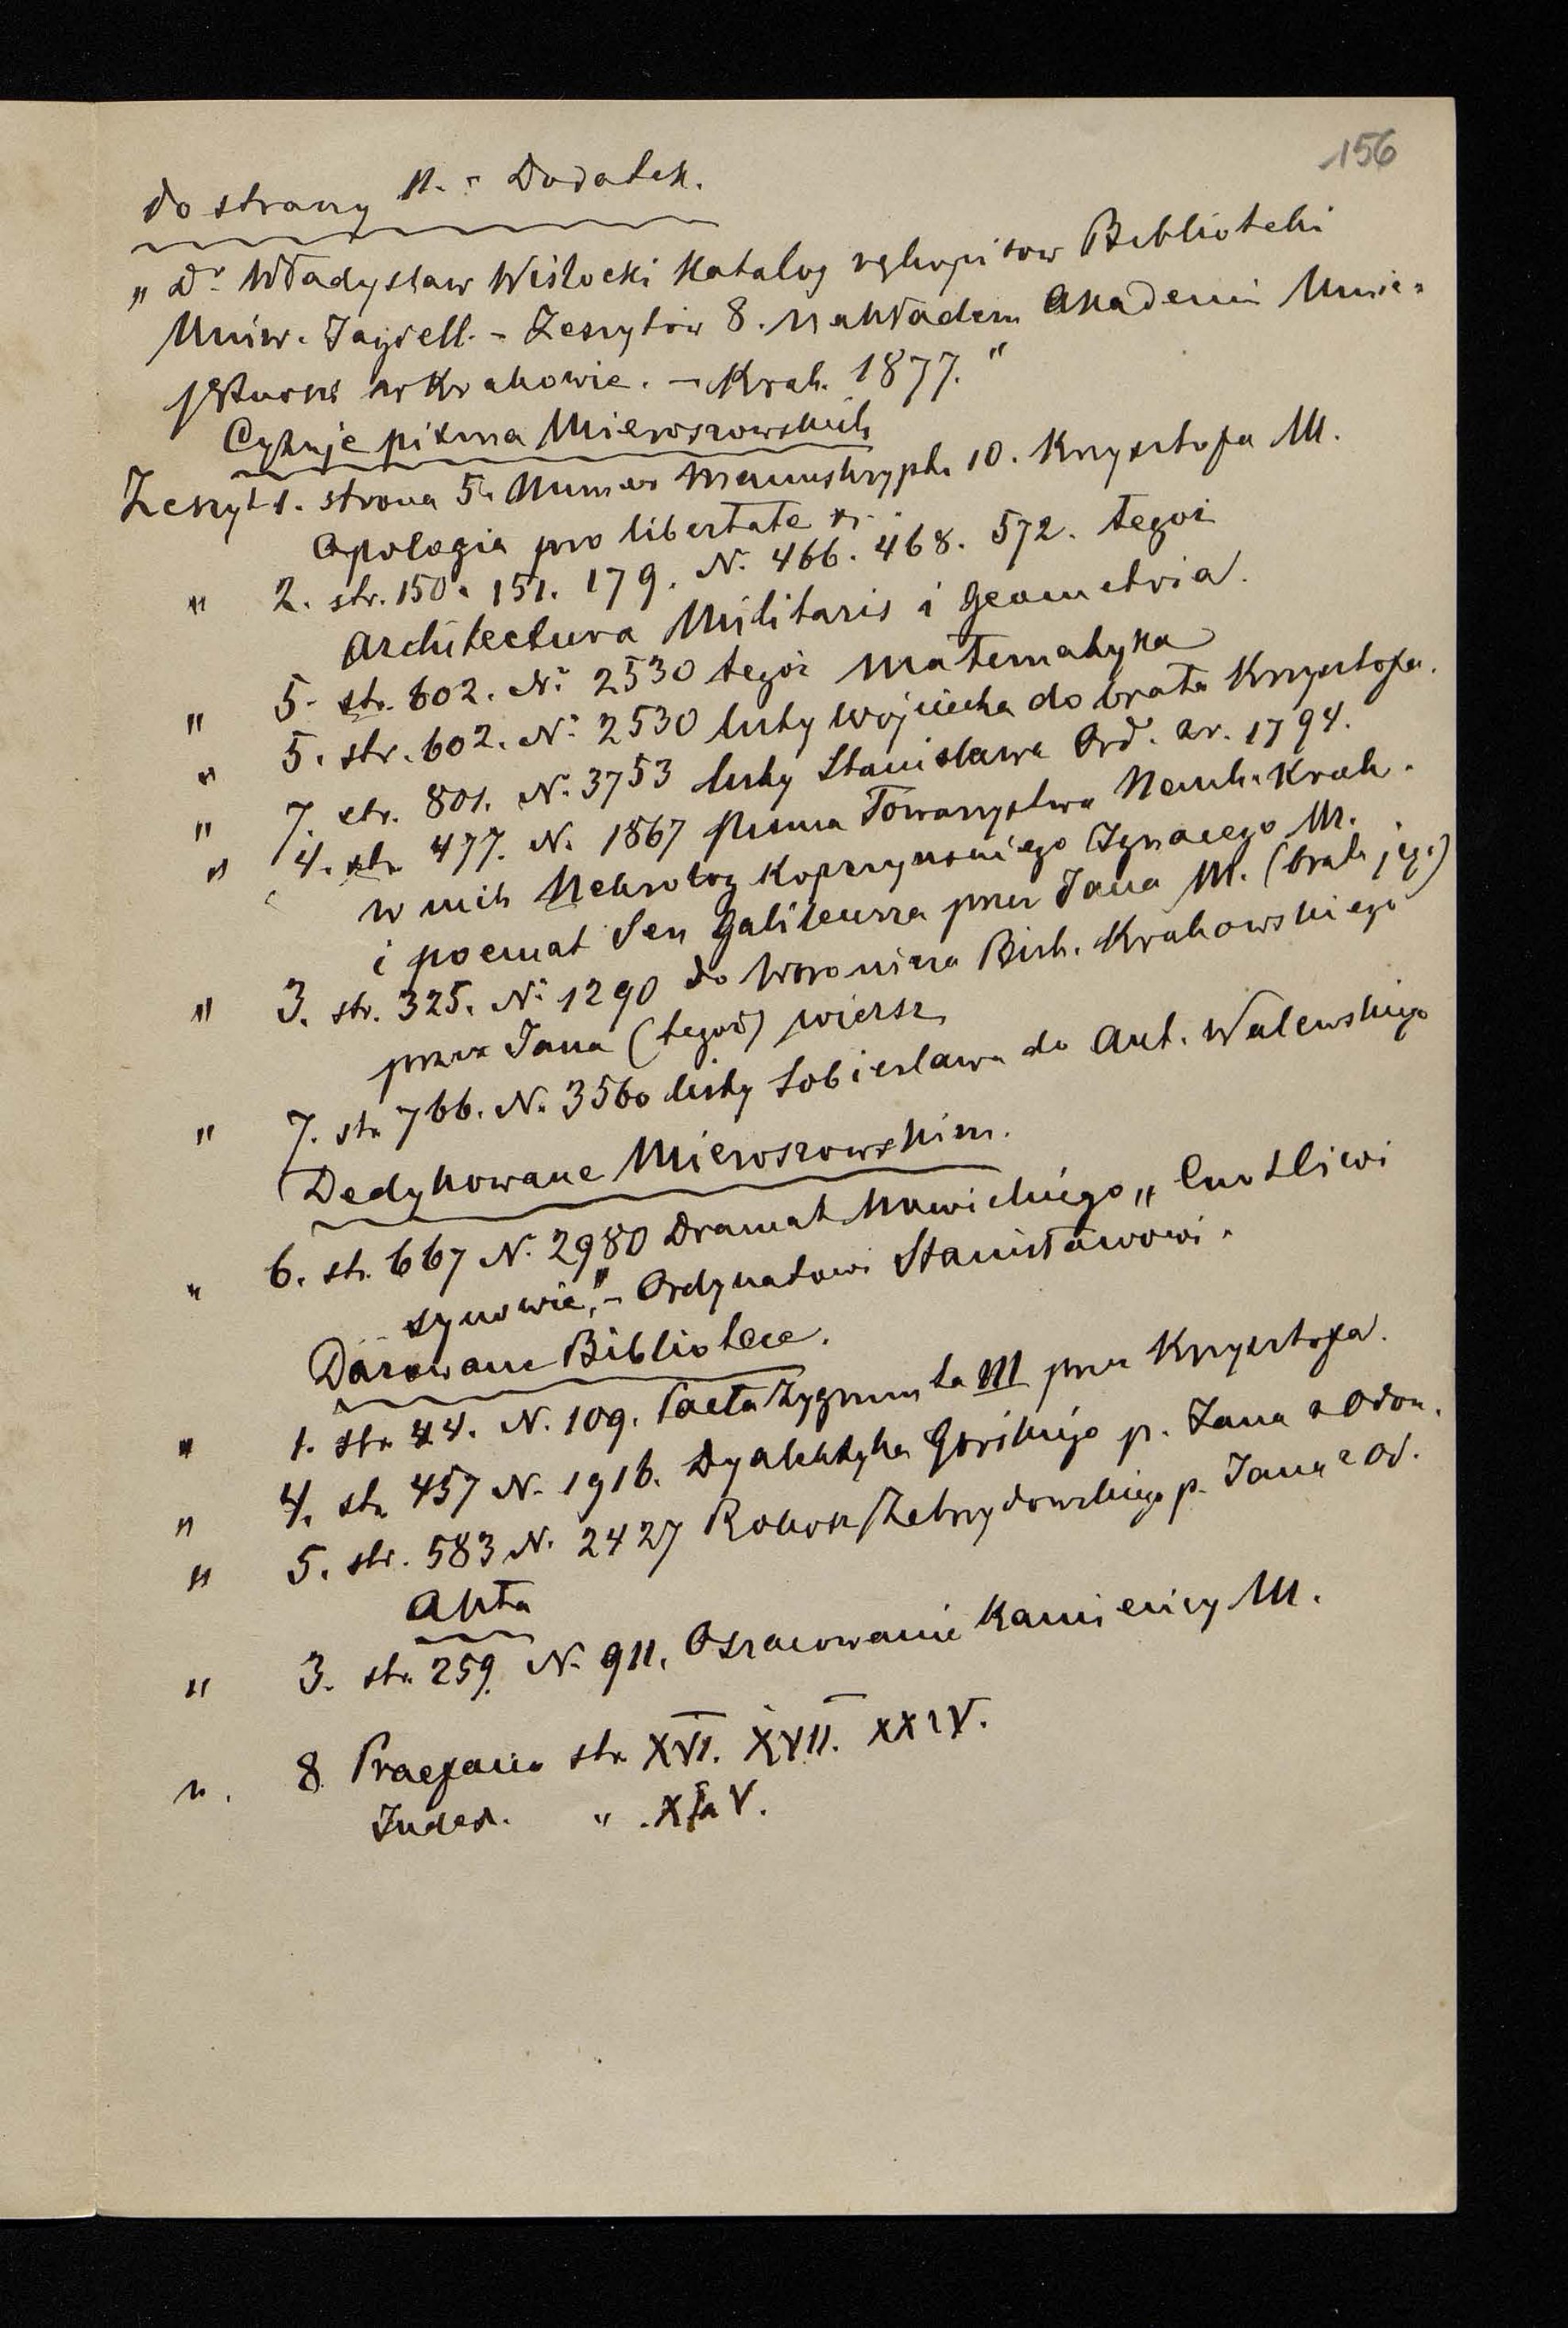 156
do strany 11. - Dodatek.
„Dr Władysław Wisłocki Katalog rękopisow Biblioteki
Uniw. Jagiell. - Zeszytów 8. Nakładem Akademii Umie-
jętnosci w Krakowie. - Krak. 1877."
Cytuje pisma Mieroszowskich
Zeszyt 1. strona 5. Numer Manuskryptu 10. Krzysztofa M.
Apologia pro libertate
" 2. str. 150. 151. 179. N. 466. 468. 572. tegoż
Architectura Militaris i Geometria.
" 5. str. 602. N. 2530 tegoż Matematyka
" 5. str. 602. N. 2530 listy Wojciecha do brata Krzysztofa.
" 7. str. 801. N. 3753 listy Stanisława Ord. z r. 1794.
" 4. str. 477. N. 1867 Pisma Towarzystwa Nauk. Krak.
w nich Nekrolog Kopczyńskiego Ignacego M.
i poemat Sen Galileusza przez Jana M. (brata jego)
" 3. str. 325. N. 1290 do Woronicza Bisk. Krakowskiego
przez Jana (tegoż) wiersz
" 7. str. 766. N. 3560 listy Sobiesława do Ant. Walewskiego
Dedykowane Mieroszowskim.
" 6. str. 667 N. 2980 Dramat Nowickiego „Cnotliwi
synowie," - Ordynatowi Stanisławowi.
Darowane Bibliotece.
" 1. str. 44. N. 109. Pacta Zygmunta III przez Krzysztofa.
" 4. str. 457 N. 1916. Dyalektyka Górskiego p. Jana
" 5. str. 583 N. 2427 Rokosz Zebrzydowskiego p. Jana
Akta
" 3. str. 259. N. 911. Oszacowanie Kamienicy M.
" 8 Praefacio str. XVI. XVII. XXIV.
Index. "